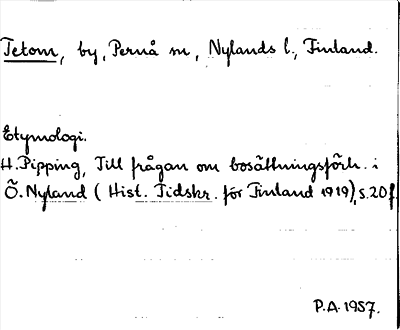 Tetom, by, Pernå sn, Nylands l., Finland.
Etymologi.
H. Pipping, Till frågan om bosättningsförh. i
Ö. Nyland (Hist. Tidskr. för Finland 1919), s. 20 f.
P.A. 1957.